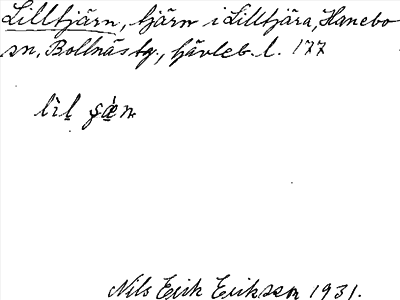 Lilltjärn, tjärn i Lilltjära, Hanebo
sn, Bollnäs tg., Gävleb. l. 177
Nils Erik Eriksson 1931.